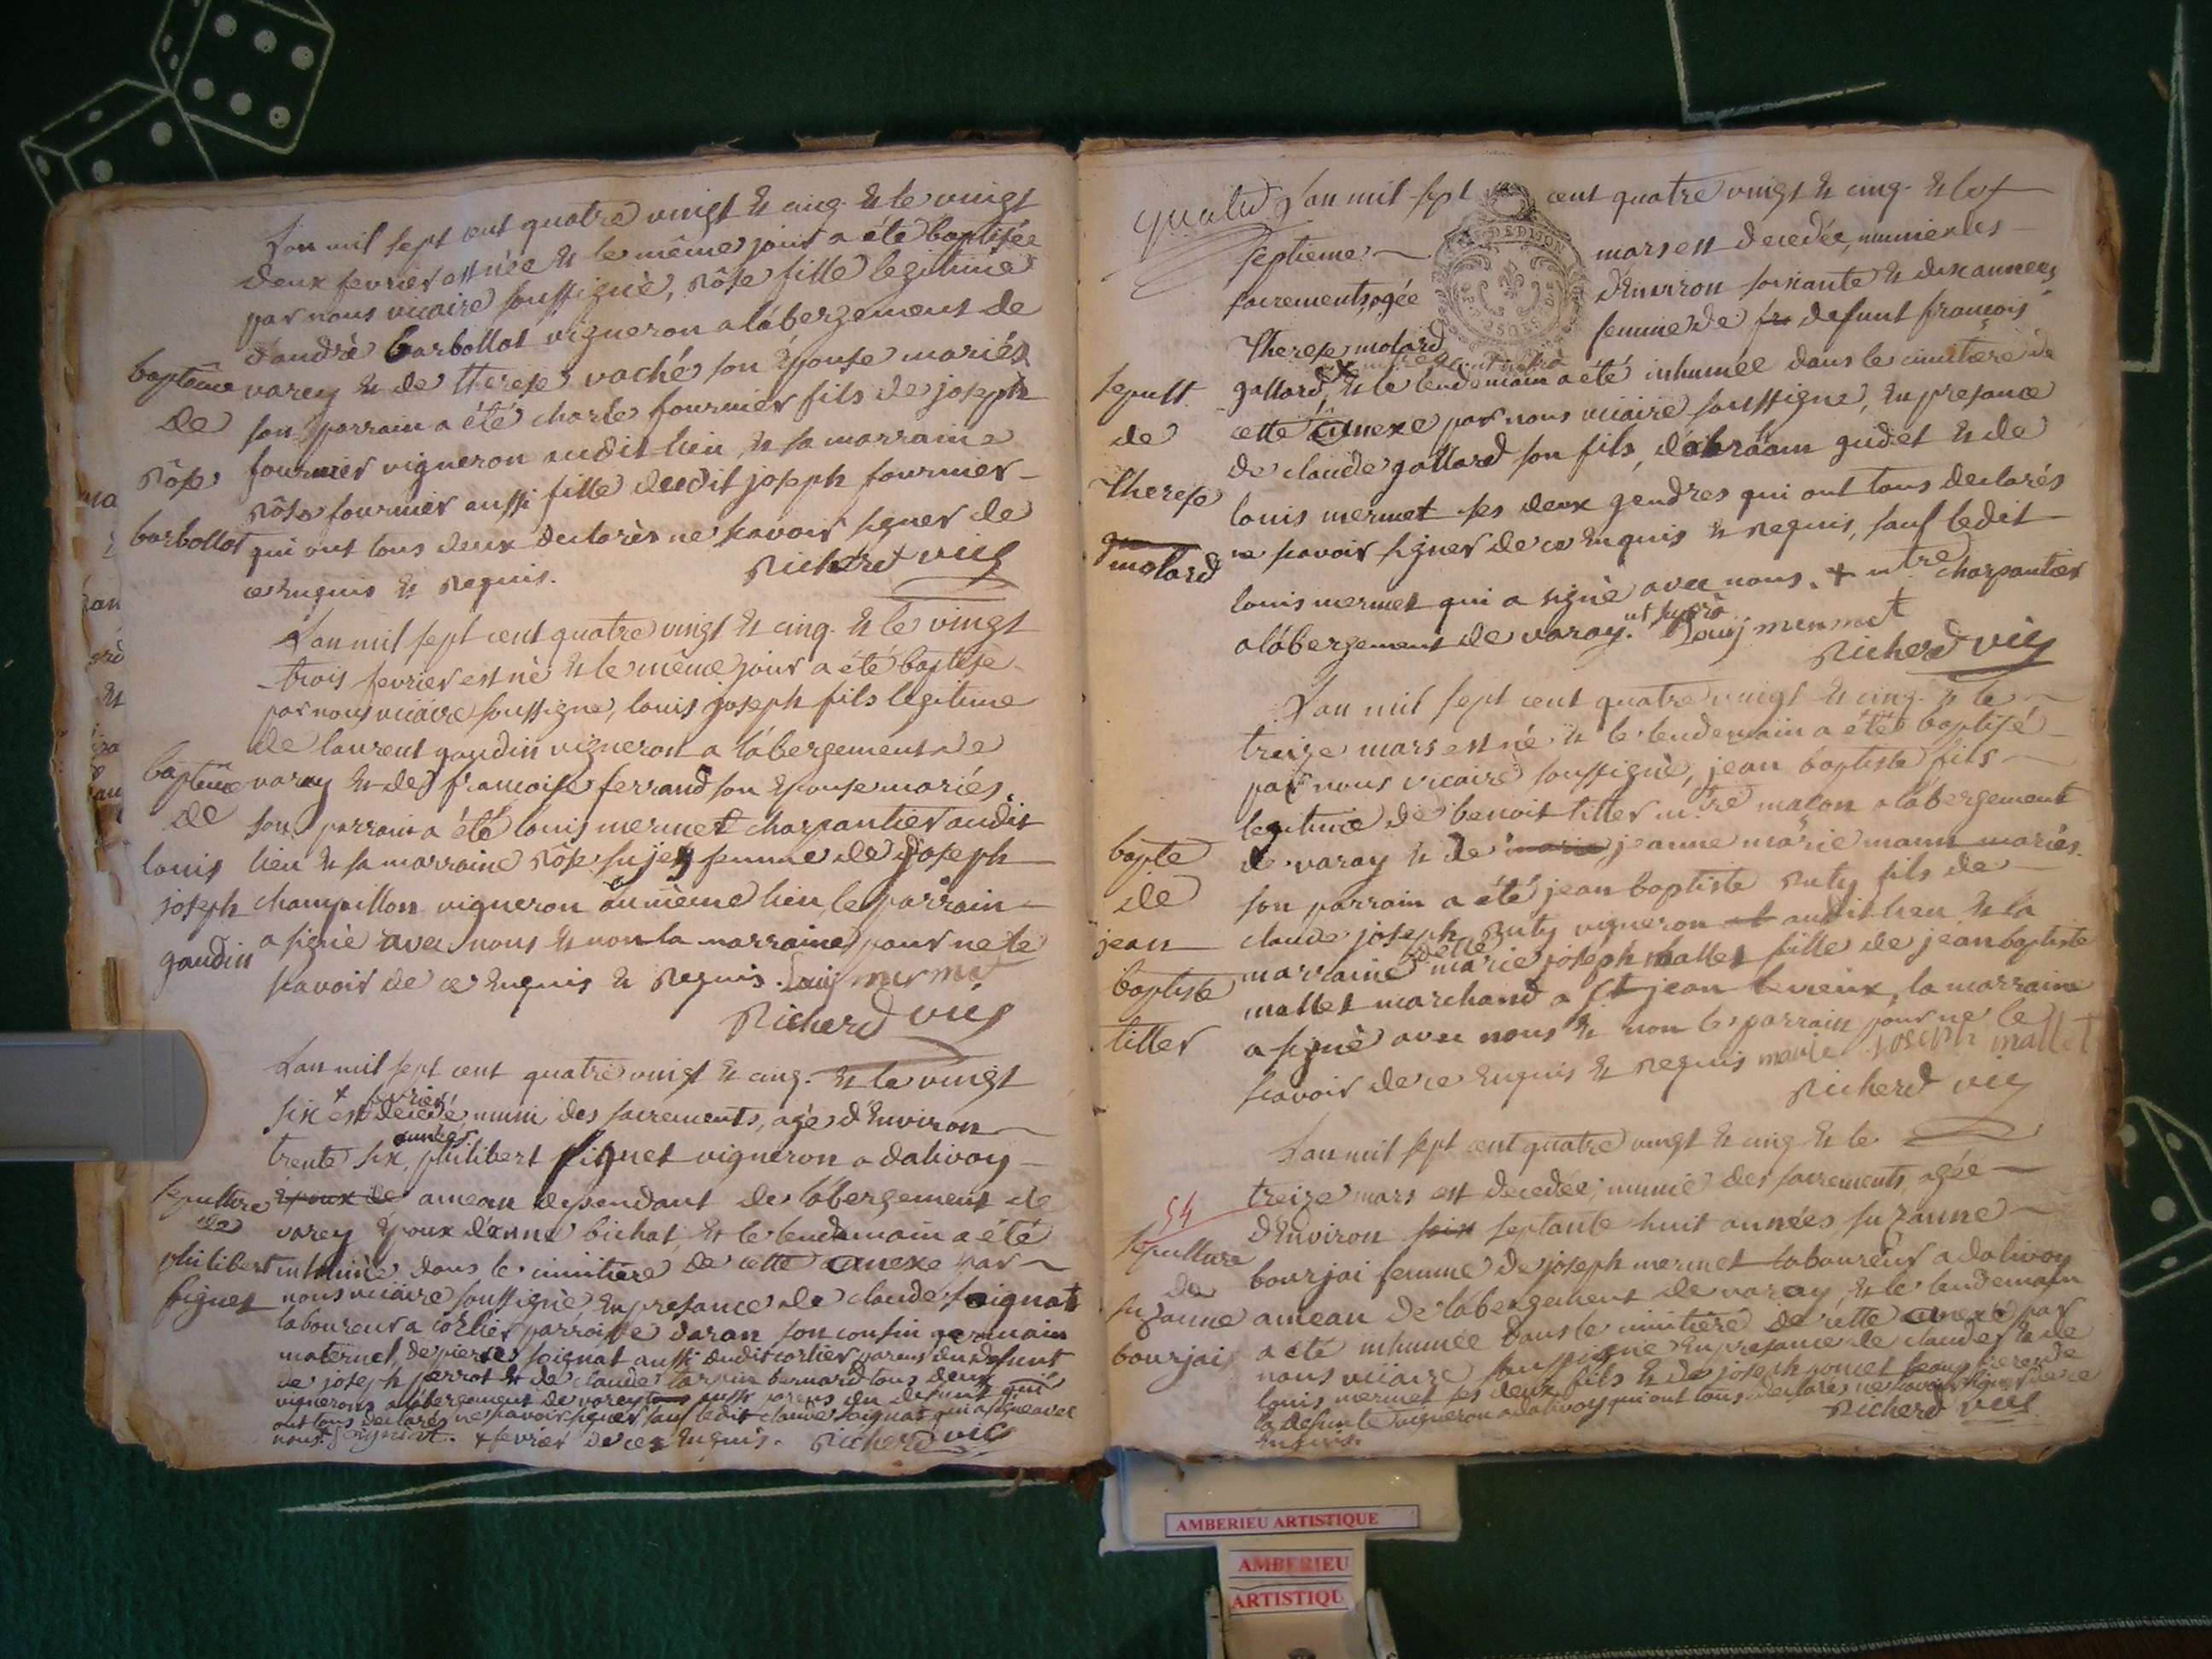 Lan mil sept cent quatre vingt & cinq. & le vingt
deux fevrier est née & le même jour a été baptisée
par nous vicaire soussigné, Rôse fille legitime
d'andré barbollat vigneron a lâbergement de
baptême varey & de therese vaché son épouse mariés
de son parrain a été charle fournier fils de joseph
Rôse fournier vigneron audit lieu, & sa marraine
Rôse fournier aussi fille dudit joseph fournier
barbollat qui ont tous deux declarés ne scavoir signer de
ce enquis & requis. Richerd vic
Lan mil sept cent quatre vingt & cinq. & le vingt
trois fevrier est né & le même jour a été baptisé
par nous vicaire soussigné, louis joseph fils legitime
de laurent gaudin vigneron a lâbergement de
baptême varay & de françoise ferrand son épouse mariés.
de son parrain a été louis mermet charpantier audit
louis lieu & sa marraine Rôse sujey femme de joseph
joseph champillon vigneron au même lieu, le parrain
gaudin a signé avec nous & non la marraine pour ne le
scavoir de ce enquis & requis. Louij mermet
Richerd vic
Lan mil sept cent quatre vingt & cinq. & le vingt
six + est decedé muni des sacrements, agé d'environ
années
trente six, philibert signet vigneron a dalivoy
sepulture époux de ameau dependant de lâbergement de
de varey époux d'anne bichat, & le lendemain a été
philibert inhumé dans le cimitière de cette annexe par
signet nous vicaire soussigné en presance de claude soignat
laboureur a corlier parroisse daran son cousin germain
maternel, de pierre soignat aussi dudit corlier parens du defunt
de joseph perrot & de claude bernard tous deux
vignerons a lâbergement de varey aussi parens du defunt qui
ont tous declarés ne scavoir signer sauf ledit claude soignat qui a signé avec
nous. Soignat. + fevrier de ce enquis. Richerd vic
quatre Lan mil sept cent quatre vingt & cinq. & le
DE DIJON
septieme mars est decedée, munie des
sacrements, agée d'environ soixante & dix années
Therese molard femme de defunt françois
sepult. gallard, & le lendemain a été inhumée dans le cimetière de
de cette annexe par nous vicaire soussigné, en presance
de claude gallard son fils, d'abraam gudet & de
Therese louis mermet ses deux gendres qui ont tous declarés
molard ne scavoir signer de ce enquis & requis, sauf ledit
louis mermet qui a signé avec nous. + mtre charpantier
a lâbergement de varay. ut supra Louij mermet
Richerd vic
Lan mil sept cent quatre vingt & cinq. & le
treize mars est né & le lendemain a été baptisé
par nous vicaire soussigné, jean baptiste fils
legitime de benoit titter mtre maçon a lâbergement
bapte de varay & de marie jeanne marie mann mariés.
de son parrain a été jean baptiste Ruty fils de
jean claude joseph Ruty vigneron audit lieu & la
delle
baptiste marraine marie joseph mallet fille de jean baptiste
mallet marchand a st jean le vieux, la marraine
titter a signé avec nous & non le parrain pour ne le
scavoir de ce enquis & requis marie joseph mallet
Richerd vic
Lan mil sept cent quatre vingt & cinq & le
54 treize mars est decedée, munie des sacrements, agée
d'environ soix septante huit années suzanne
sepulture bourjai femme de joseph mermet laboureur a dalivoy
de
suzanne ameau de lâbergement de varay, & le lendemain
bourjai a été inhumée dans le cimitière de cette annexe par
nous vicaire soussigné en presance de claude & de
louis mermet ses deux fils & de joseph poncet beau frere de
la defunte vigneron a dalivoy qui ont tous declarés ne scavoir signer de ce
enquis. Richerd vic
AMBERIEU ARTISTIQUE
AMBERIEU
ARTISTIQU